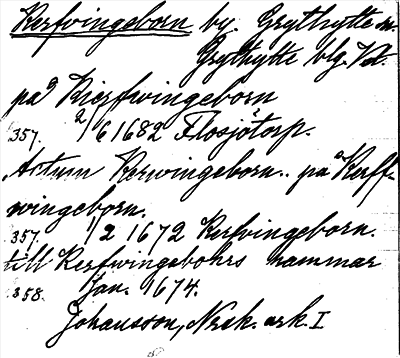 Kerfvingeborn by Grythytte sn.
Grythytte blg. Vstm.
på Kierfwingeborn
357. 2/6 1682 Flosjötorp.
Actum Kerwingeborn.. på Kerff-
wingeborn.
357. 1/2 1672 Kerfvingeborn.
till Kerfwingebohrs hammar
358. Jan. 1674.
Johansson, Nrek. ark. I